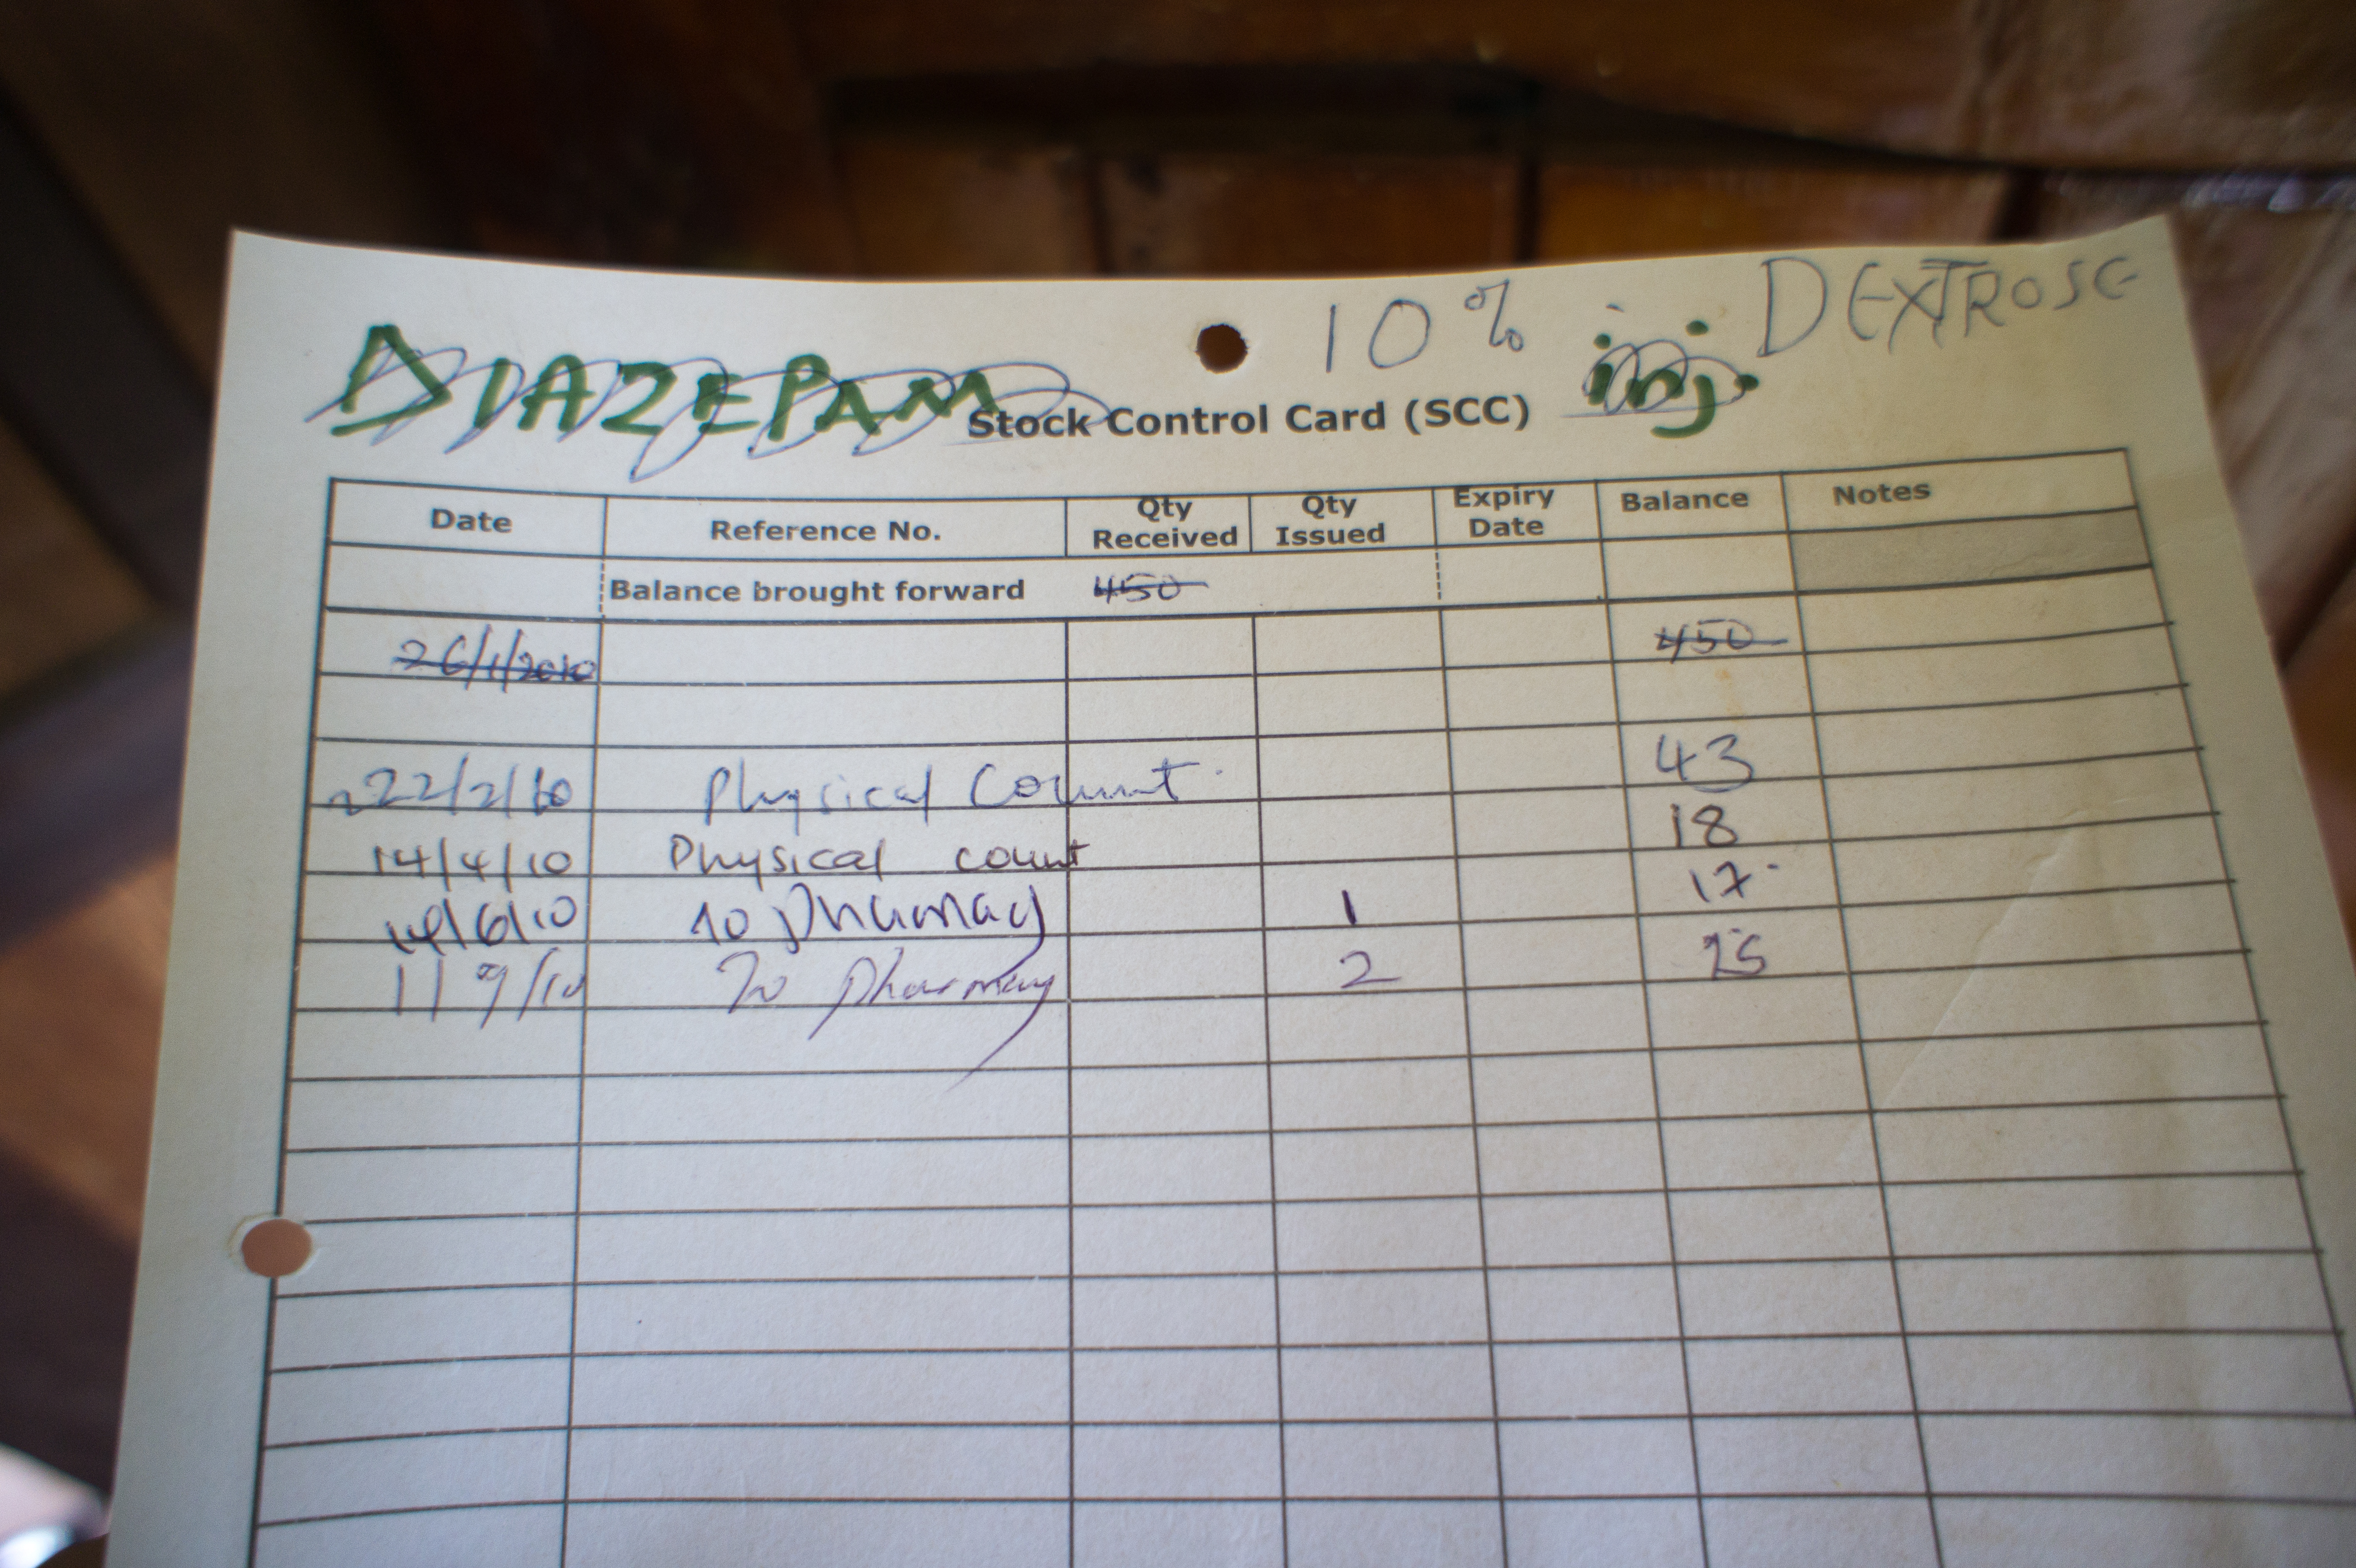 10% DEXTROSE
DIAZEPAM inj.
Stock Control Card (SCC)
Date Reference No. Qty Received Qty Issued Expiry Date Balance Notes
Balance brought forward 450
26/1/2010 450
22/2/10 Physical Count 43
14/4/10 Physical count 18
/6/10 To pharmacy 1 17
11 9/10 To pharmacy 2